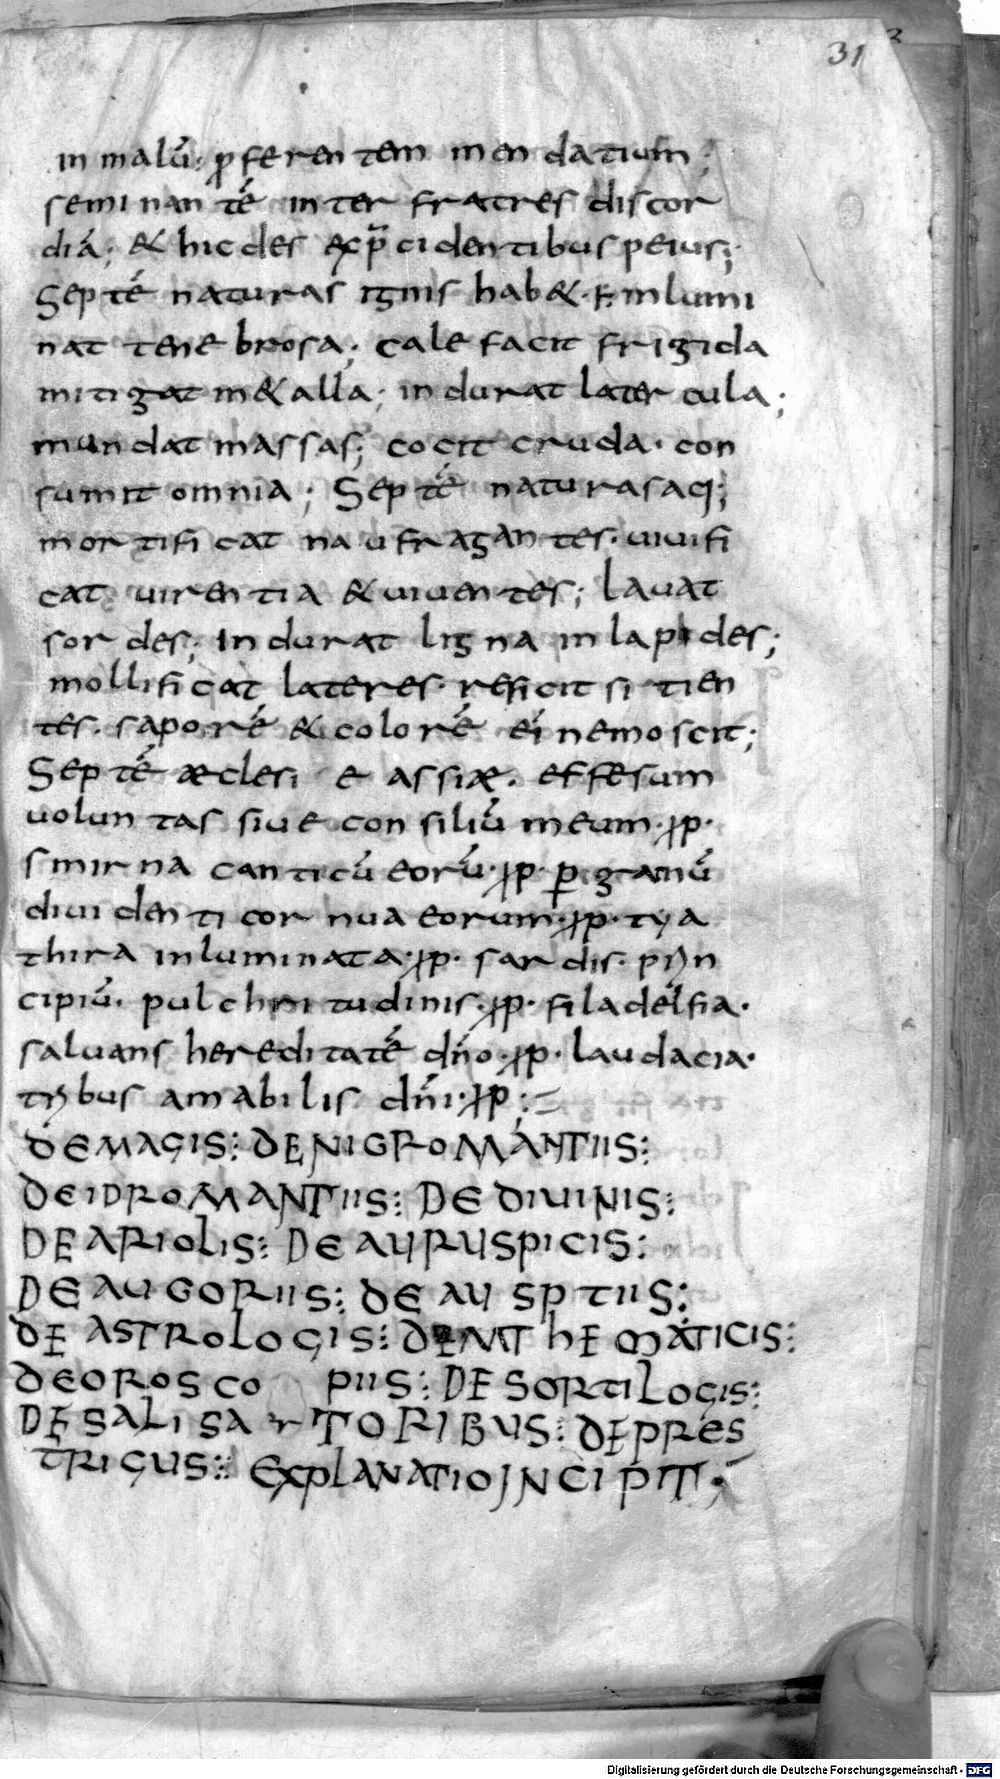 31
in malū· ꝓferentem mendatium;
seminantē inter fratres discor
diā; & hic des exp̄cidentibus peius;
Septē naturas ignis hab&· inlumi
nat tenebrosa; calefacit frigida
mitigat m&alla; indurat latercula;
mundat massas; cocit cruda· con
sumit omnia; Septē naturas aq;
mortificat naufragantes· uiuifi
cat uirentia & uiuentes; Lauat
sordes; Indurat ligna in lapides;
mollificat lateres· reficit sitien
tes· saporē & colorē eī nemo scit;
Septē æclesi e assiæ· effesum
uoluntas siue consiliū meum·
smirna canticū eorū· ꝑgamū
diuidenti cornua eorum· tya
thira inluminata· sardis· prin
cipiū· pulchritudinis· filadelfia·
saluans hereditatē dn̄o· laudacia·
tribus amabilis dn̄i·
DE MAGIS: DE NIGROMANTIIS:
DE IDROMANTIIS: DE DIUINIS:
DE ARIOLIS: DE AURUSPICIS:
DE AUGORIIS: DE AUSPTIIS:
DE ASTROLOGIS: DE MATHEMATICIS:
DE OROSCOPIIS: DE SORTILOGIS:
DE SALISATORIBUS: DE PRES
TRIGUS: EXPLANATIO INCIPIT;
Digitalisierung gefördert durch die Deutsche Forschungsgemeinschaft - DFG